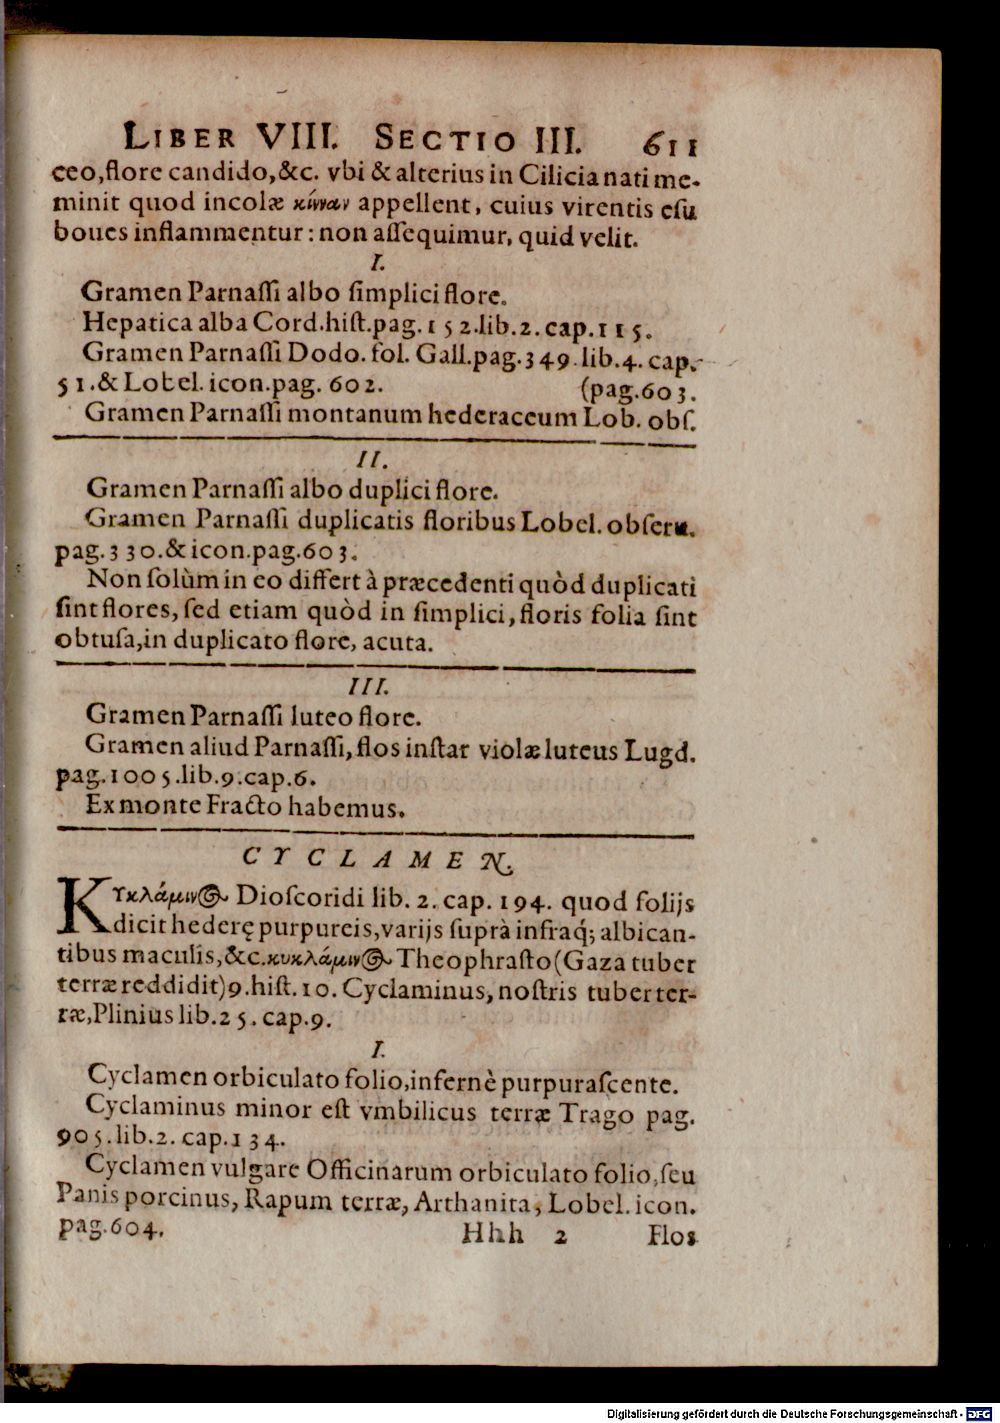 LIBER VIII. SECTIO III. 611
ceo, flore candido, &c. vbi & alterius in Cilicia nati me-
minit quod incolæ κίνναν appellent, cuius virentis esu
boues inflammentur: non assequimur, quid velit.
I.
Gramen Parnassi albo simplici flore.
Hepatica alba Cord. hist. pag. 152. lib. 2. cap. 115.
Gramen Parnassi Dodo. fol. Gall. pag. 349. lib. 4. cap.
51. & Lobel. icon. pag. 602. (pag. 603.
Gramen Parnassi montanum hederaceum Lob. obs.
II.
Gramen Parnassi albo duplici flore.
Gramen Parnassi duplicatis floribus Lobel. obseru.
pag. 330. & icon. pag. 603.
Non solùm in eo differt à præcedenti quòd duplicati
sint flores, sed etiam quòd in simplici, floris folia sint
obtusa, in duplicato flore, acuta.
III.
Gramen Parnassi luteo flore.
Gramen aliud Parnassi, flos instar violæ luteus Lugd.
pag. 1005. lib. 9. cap. 6.
Ex monte Fracto habemus.
CYCLAMEN.
Κυκλάμινος Dioscoridi lib. 2. cap. 194. quod folijs
dicit hederę purpureis, varijs suprà infraq́; albican-
tibus maculis, &c. κυκλάμινος Theophrasto (Gaza tuber
terræ reddidit) 9. hist. 10. Cyclaminus, nostris tuber ter-
ræ, Plinius lib. 25. cap. 9.
I.
Cyclamen orbiculato folio, infernè purpurascente.
Cyclaminus minor est vmbilicus terræ Trago pag.
905. lib. 2. cap. 134.
Cyclamen vulgare Officinarum orbiculato folio, seu
Panis porcinus, Rapum terræ, Arthanita, Lobel. icon.
pag. 604. Hhh 2 Flos
Digitalisierung gefördert durch die Deutsche Forschungsgemeinschaft - DFG